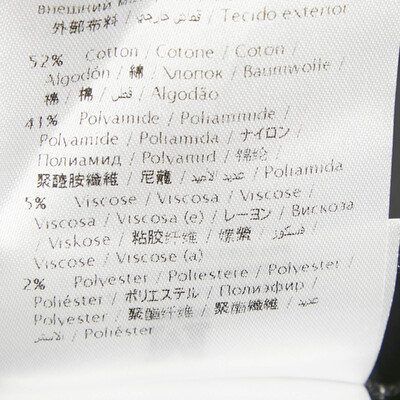 внешний
外部布料 / قماش خارجي / Tecido exterior
52% Cotton / Cotone / Coton /
Algodón / 綿 / Хлопок / Baumwolle /
棉 / 棉 / قطن / Algodão
41% Polyamide / Poliammide /
Polyamide / Poliamida / ナイロン /
Полиамид / Polyamid / 锦纶 /
聚醯胺纖維 / 尼龍 / عديد الأميد / Poliamida
5% Viscose / Viscosa / Viscose /
Viscosa / Viscosa (e) / レーヨン / Вискоза
/ Viskose / 粘胶纤维 / 嫘縈 / فسكوز /
Viscose / Viscose (a)
2% Polyester / Poliestere / Polyester /
Poliéster / ポリエステル / Полиэфир /
Polyester / 聚酯纤维 / 聚酯纖維 / عديد
الأستر / Poliéster